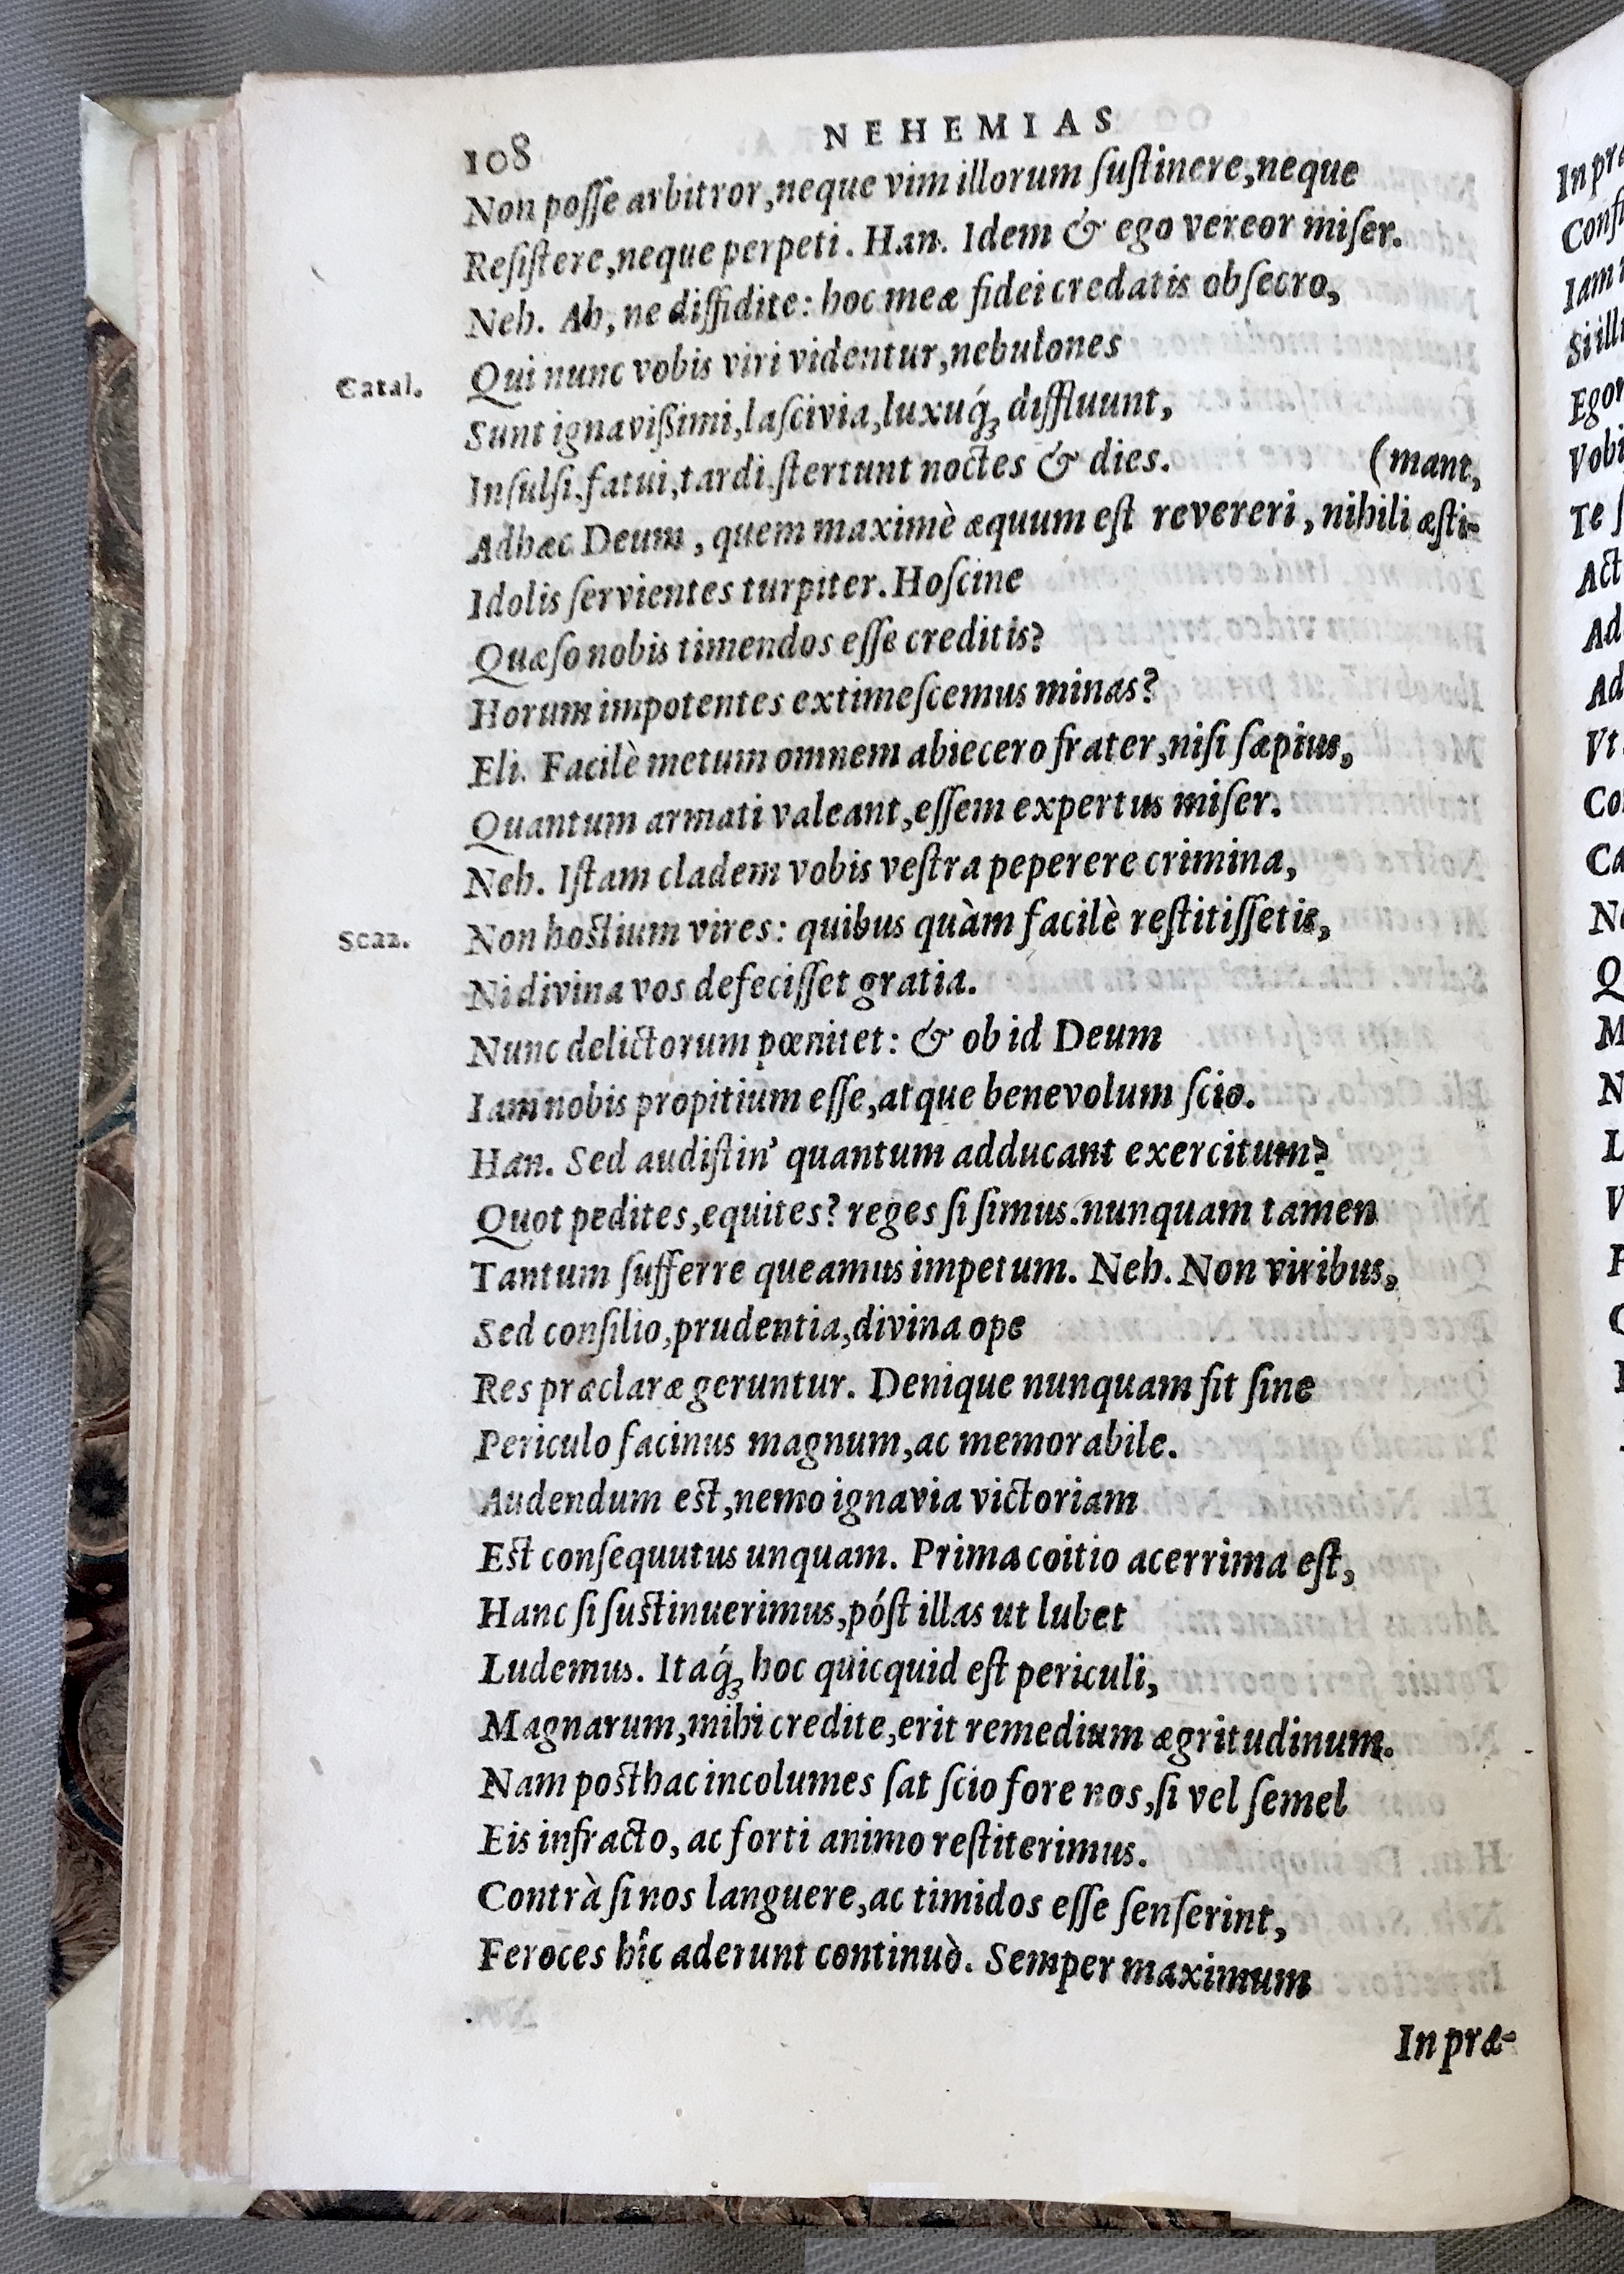 108 NEHEMIAS
Non poſſe arbitror, neque vim illorum ſuſtinere, neque
Reſiſtere, neque perpeti. Han. Idem & ego vereor miſer.
Neh. Ah, ne diffidite: hoc meæ fidei credatis obſecro,
Qui nunc vobis viri videntur, nebulones
Catal.
Sunt ignavißimi, laſcivia, luxuq́ꝫ diffluunt,
Inſulſi, fatui, tardi, ſtertunt noctes & dies. (mant,
Adhæc Deum, quem maximè æquum eſt revereri, nihili æſti-
Idolis ſervientes turpiter. Hoſcine
Quæſo nobis timendos eſſe creditis?
Horum impotentes extimeſcemus minas?
Eli. Facilè metum omnem abiecero frater, niſi ſæpius,
Quantum armati valeant, eſſem expertus miſer.
Neh. Iſtam cladem vobis veſtra peperere crimina,
Scaz. Non hoſtium vires: quibus quàm facilè reſtitiſſetis,
Ni divina vos defeciſſet gratia.
Nunc delictorum pœnitet: & ob id Deum
Iam nobis propitium eſſe, atque benevolum ſcio.
Han. Sed audiſtin' quantum adducant exercitum?
Quot pedites, equites? reges ſi ſimus. nunquam tamen
Tantum ſufferre queamus impetum. Neh. Non viribus,
Sed conſilio, prudentia, divina ope
Res præclaræ geruntur. Denique nunquam fit ſine
Periculo facinus magnum, ac memorabile.
Audendum eſt, nemo ignavia victoriam
Eſt conſequutus unquam. Prima coitio acerrima eſt,
Hanc ſi ſuſtinuerimus, póſt illas ut lubet
Ludemus. Itaq́ꝫ hoc quicquid eſt periculi,
Magnarum, mihi credite, erit remedium ægritudinum.
Nam poſthac incolumes ſat ſcio fore nos, ſi vel ſemel
Eis infracto, ac forti animo reſtiterimus.
Contrà ſi nos languere, ac timidos eſſe ſenſerint,
Feroces hîc aderunt continuò. Semper maximum
In præ-